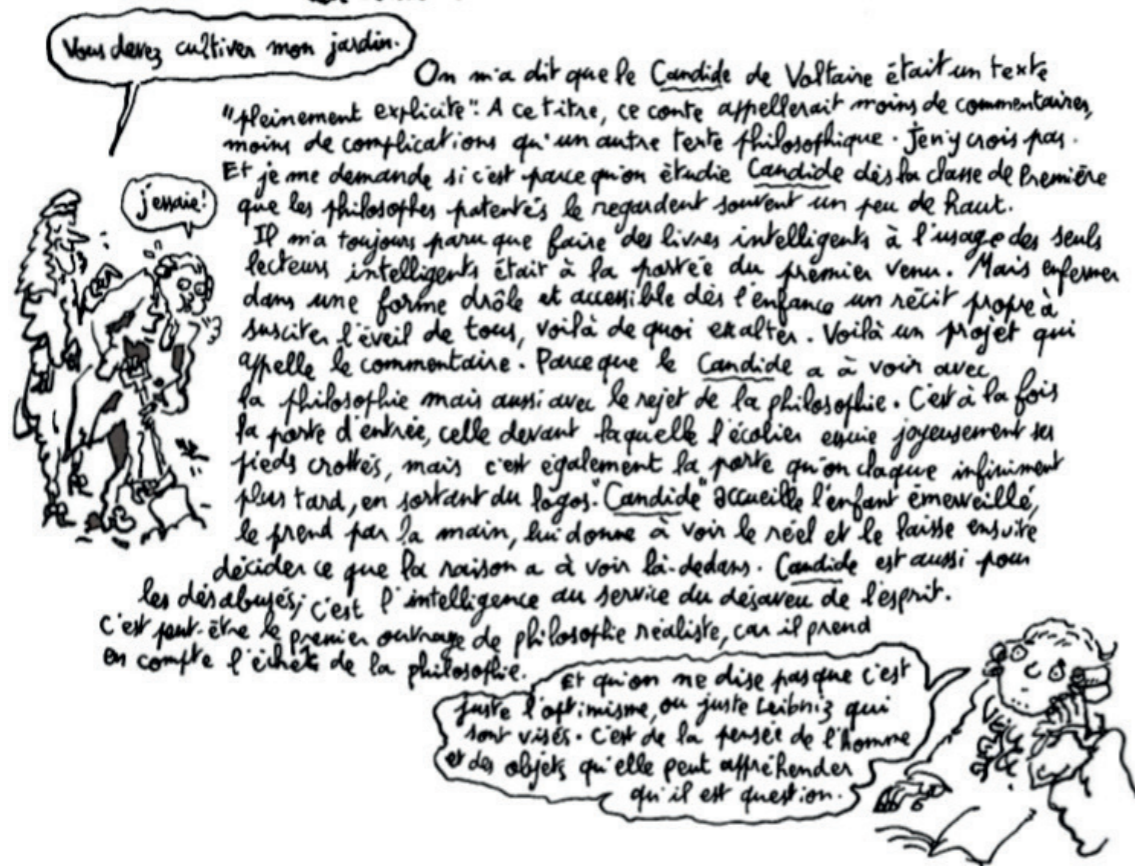 Vous devez cultiver mon jardin.
On m'a dit que le Candide de Voltaire était un texte
"pleinement explicite". A ce titre, ce conte appellerait moins de commentaires,
moins de complications qu'un autre texte philosophique. J'en'y crois pas.
Et je me demande si c'est parce qu'on étudie Candide dès la classe de Première
que les philosophes patentés le regardent souvent un peu de haut.
j'essaie!
Il m'a toujours paru que faire des livres intelligents à l'usage des seuls
lecteurs intelligents était à la portée du premier venu. Mais enfermer
dans une forme drôle et accessible dès l'enfance un récit propre à
susciter l'éveil de tous, voilà de quoi exalter. Voilà un projet qui
appelle le commentaire. Parce que le Candide a à voir avec
la philosophie mais aussi avec le rejet de la philosophie. C'est à la fois
la porte d'entrée, celle devant laquelle l'écolier essuie joyeusement ses
pieds crottés, mais c'est également la porte qu'on claque infiniment
plus tard, en sortant du logos. "Candide" accueille l'enfant émerveillé,
le prend par la main, lui donne à voir le réel et le laisse ensuite
décider ce que la raison a à voir là-dedans. Candide est aussi pour
les désabusés; c'est l'intelligence au service du désaveu de l'esprit.
C'est peut-être le premier ouvrage de philosophie réaliste, car il prend
en compte l'échec de la philosophie.
Et qu'on ne dise pas que c'est
juste l'optimisme, ou juste Leibniz qui
sont visés. C'est de la pensée de l'homme
et des objets qu'elle peut appréhender
qu'il est question.